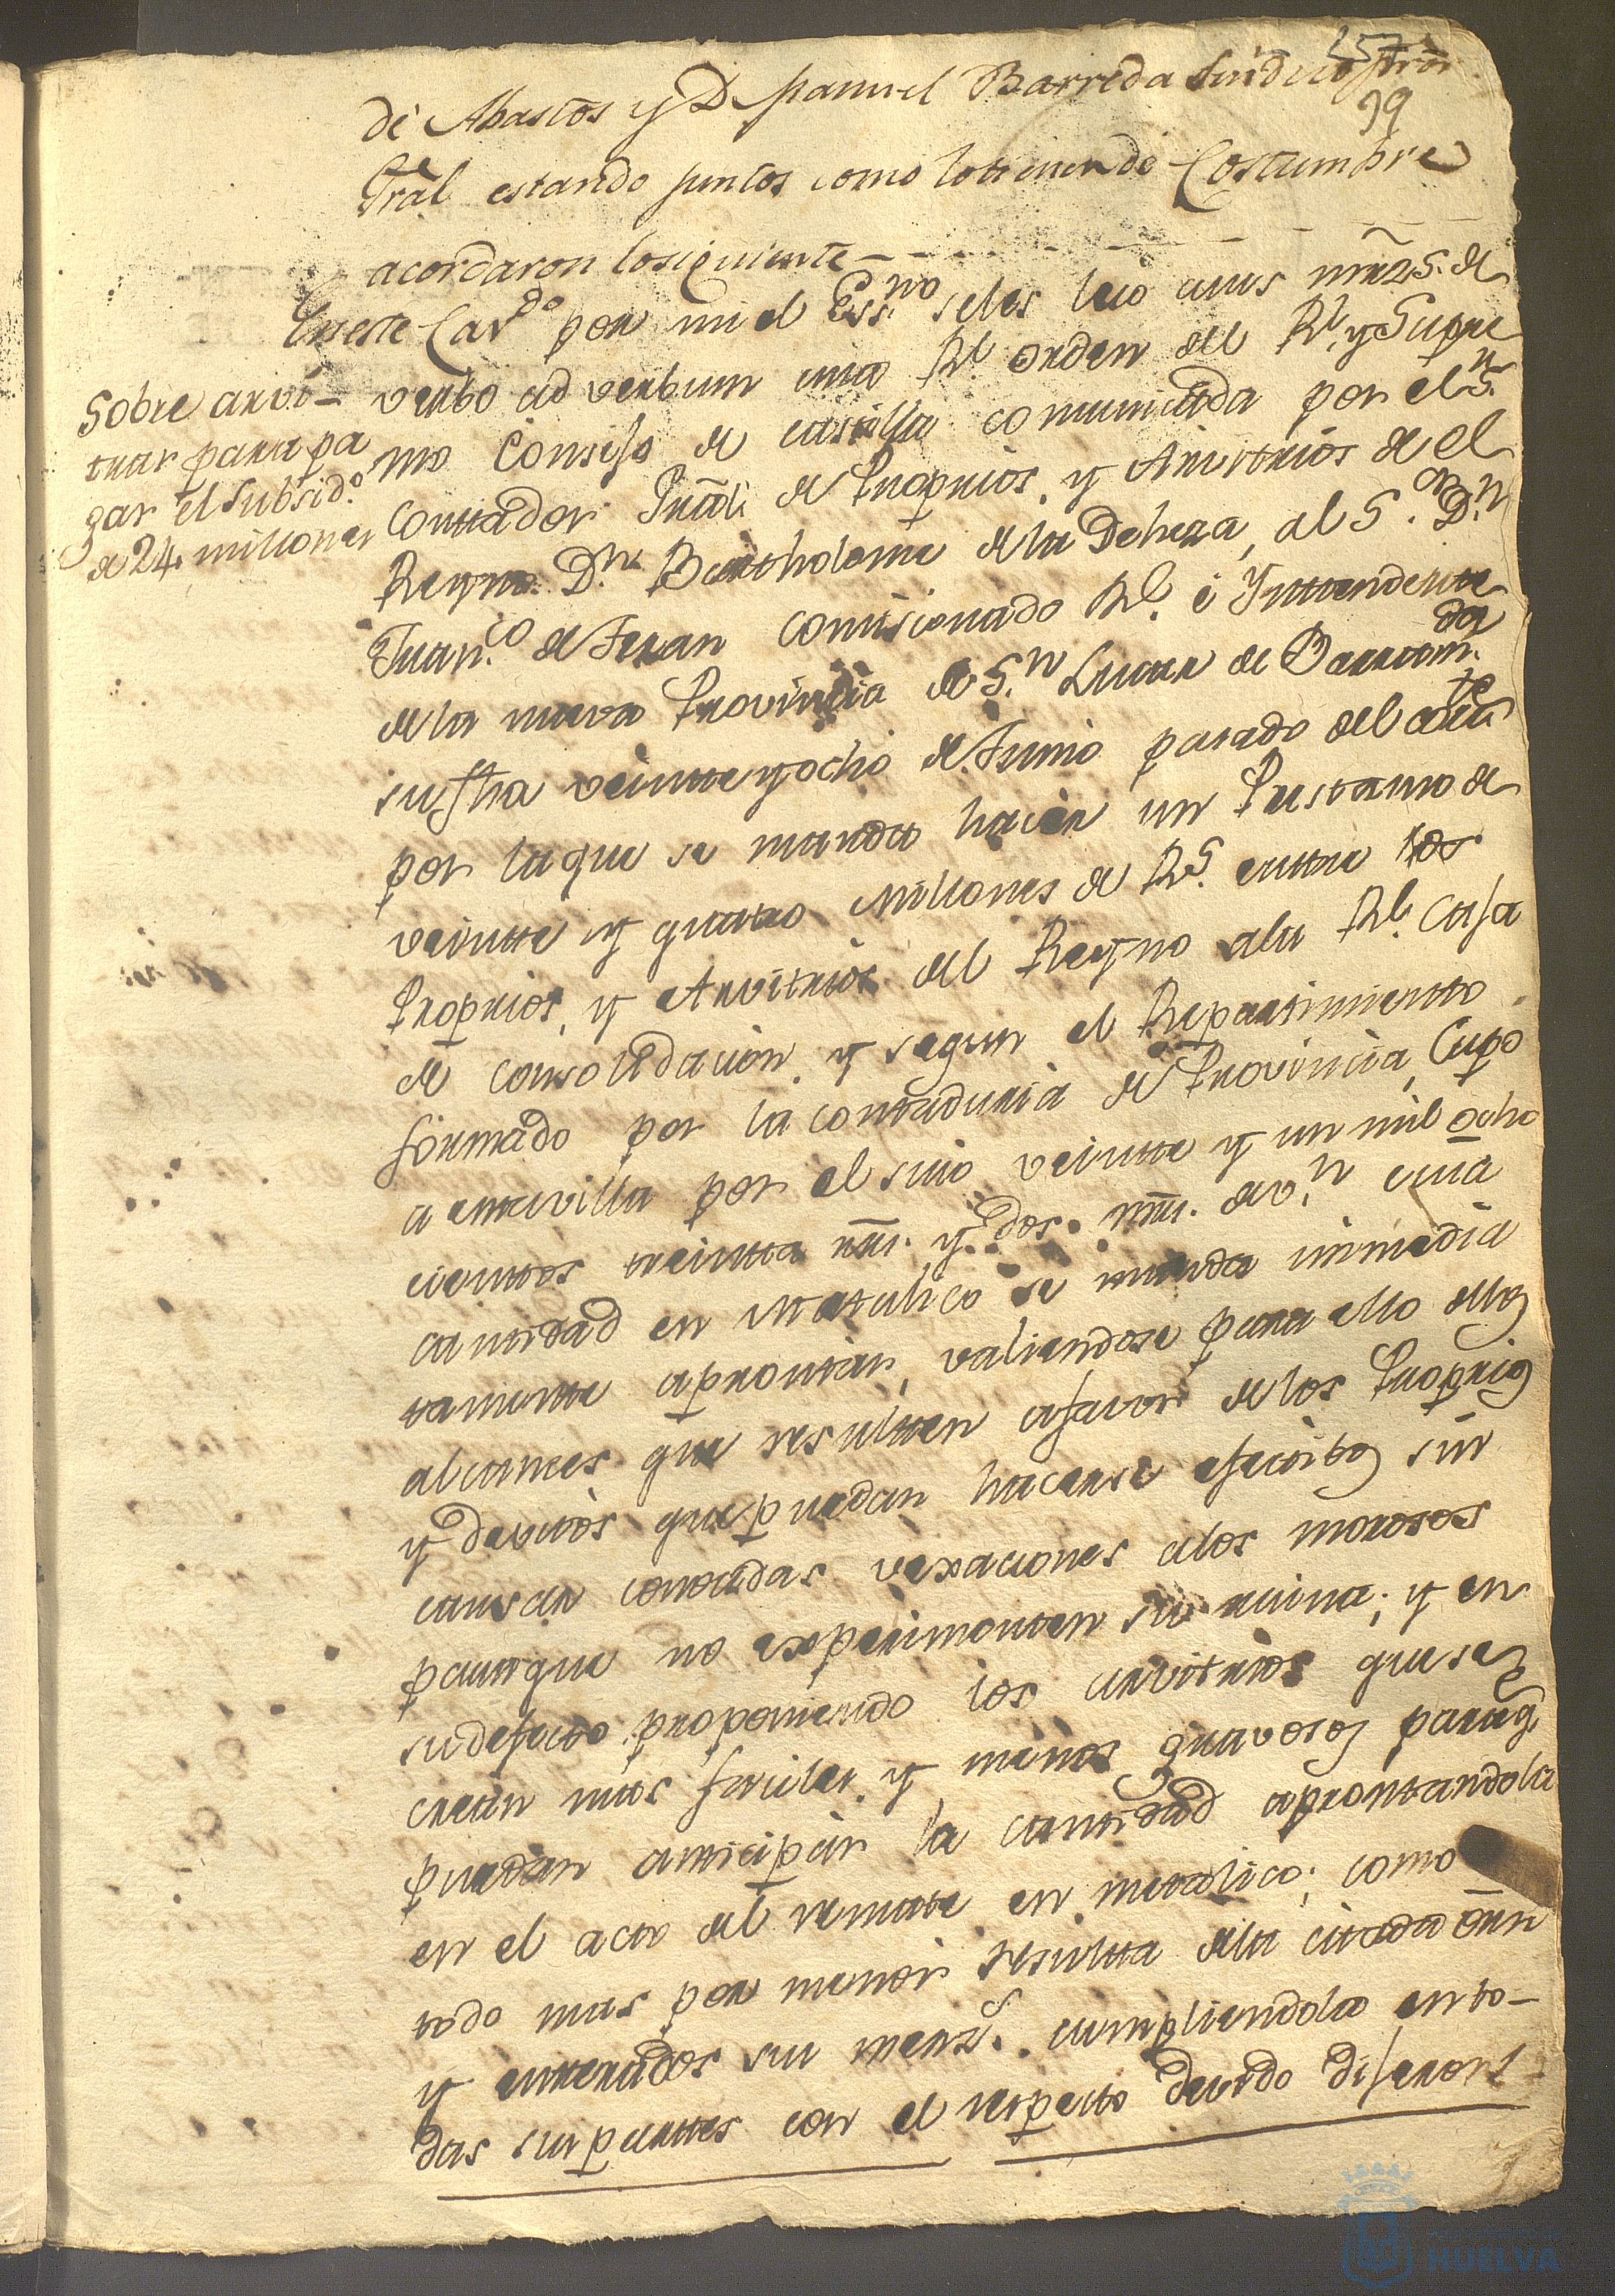 257
99
de Abastos y D. Manuel Barreda Sindico Pror.
Gral estando juntos como lo tienen de Costumbre
acordaron lo siguiente
En este Cavdo. por mi el Essno. se les leio a sus mrzs. de
verbo ad verbum una Rl. orden del Rl. y Supre
mo Consejo de Castilla comunicada por el S.
Contador Gral. de Proprios, y Arvitrios de el
Reyno Dn. Bartholome de la Deheza, al S. Dn.
Franco. de Teran Comisionado Rl. é Yntendente
de la nueva Provincia de Sn. Lucar de Barramda.
su fha veinte y ocho de Junio pasado del corrte.
por la que se manda hacer un Prestamo de
veinte y quatro Millones de Rs. entre los
Proprios, y Arvitrios del Reyno a la Rl. Caja
de consolidacion, y segun el Repartimiento
formado por la contaduria de Provincia, Cupo
a esta villa por el suio veinte y un mil ocho
cientos treinta rrs. y dos mrs. de vn. cuia
cantidad en Matalico se manda inmedia
tamente aprontar, valiendose para ello de los
alcances que resulten a favor de los Proprios
y devitos que puedan hacerse efectivos sin
causar conocidas vexaciones a los morosos
para que no experimenten su ruina; y en
su defecto proponiendo los arvitrios que se
crean mas faciles y menos gravosos para q.
puedan anticipar la cantidad aprontandola
en el acto del remate en metalico; como
todo mas por menor resulta de la citada orn
y enterados sus merzs. cumpliendola en to-
das sus partes con el respecto devido dijeron
Sobre arvi-
trar para pa
gar el subsido.
de 24 millones
HUELVA